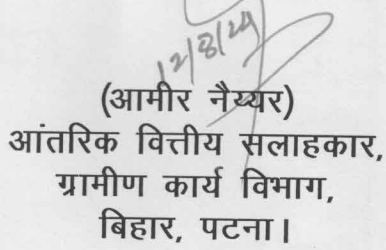 12/8/24
(आमीर नैय्यर)
आंतरिक वित्तीय सलाहकार,
ग्रामीण कार्य विभाग,
बिहार, पटना।